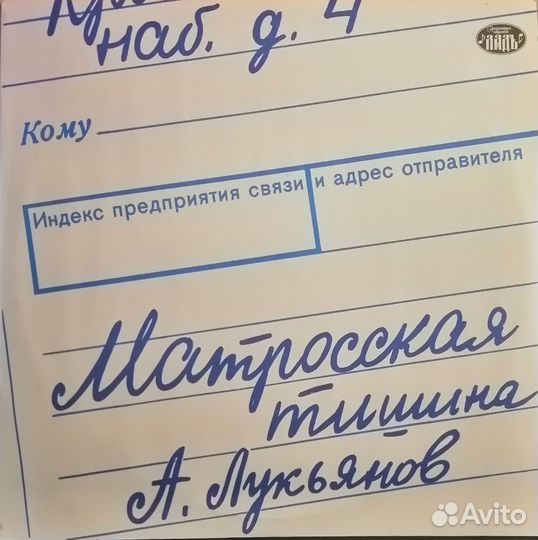 наб. д. 4
Кому
Индекс предприятия связи и адрес отправителя
Матросская
тишина
А. Лукьянов
ЛАДЪ
Avito